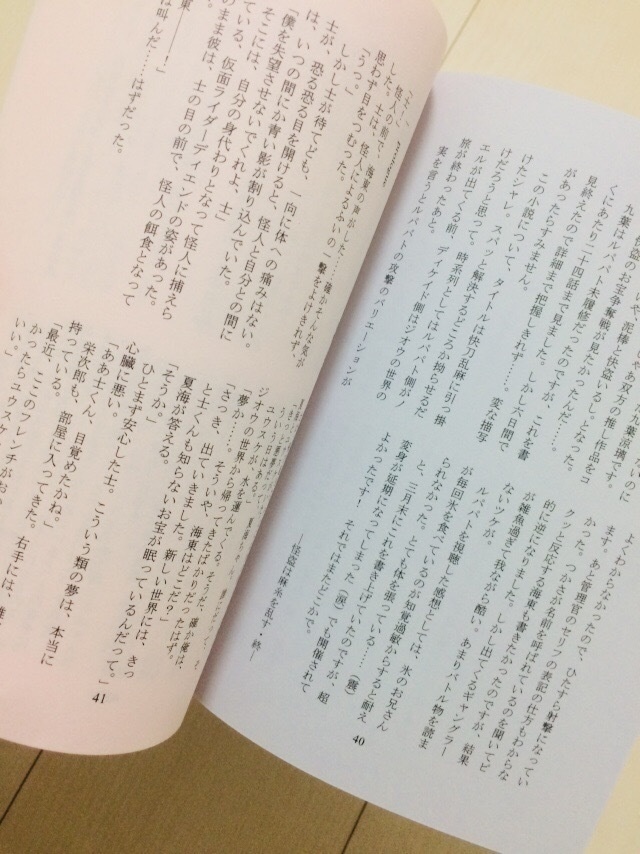 葉流璃です。
怪盗のお宝争奪戦が見たかったんだ……。
九葉はルパパト未履修だったのですが、これを書
くにあたり二十四話まで見ました。しかし六日間で
見終えたので詳細まで把握しきれず……。変な描写
があったらすみません。
この小説について、タイトルは快刀乱麻に引っ掛
けたシャレ。スパッと解決するどころか拗らせるだ
けだろうと思って。時系列としてはルパパト側がノ
エルが出てくる前、ディケイド側はジオウの世界の
旅が終わったあと。
実を言うとルパパトの攻撃のバリエーションが
よくわからなかったので、ひたすら射撃になってい
ます。あと管理官のセリフの表記の仕方もわからな
かった。つかさが名前を呼ばれているのを聞いてピ
クッと反応する海東も書きたかったのですが、結果
的に逆になりました。しかし出てくるギャングラー
が雑魚過ぎて我ながら酷い。あまりバトル物を読ま
ないツケが。
ルパパトを視聴した感想としては、氷のお兄さん
が毎回氷を食べているのが知覚過敏からすると耐え
られなかった。とても体を張っている……(震)
と、三月末にこれを書き上げていたのですが、超
変身が延期になってしまった(涙)でも開催されて
よかったです！それではまたどこかで。
―怪盗は麻糸を乱す・終―
40
した。士は、怪人によるふいの一撃をよけきれず、
思わず目をつむった。
「うっ。」
しかし士が待てども、一向に体への痛みはない。
士が、恐る恐る目を開けると、怪人と自分との間に
は、いつの間にか青い影が割り込んでいた。
「僕を失望させないでくれよ、士」
そこには、仮面ライダーディエンドの姿があった。
ている、自分の身代わりとなって怪人に捕えら
のまま彼は、士の目の前で、怪人の餌食となって
東――！」
は叫んだ……はずだった。
ユウスケが、水を運んでくる。そうだ、確か俺は、
ジオウの世界から帰ってきたばかりだったはず。
「夢か……。そういや、海東はどこだ？」
「さっき、出ていきました。新しい世界には、きっ
と士くんも知らないお宝が眠っているんだって。」
夏海が答える。
「そうか。」
ひとまず安心した士。こういう類の夢は、本当に
心臓に悪い。
「ああ士くん、目覚めたかね。」
栄次郎も、部屋に入ってきた。右手には、
持っている。
「最近、ここのフレンチが
かったらユウスケ
いい。」
41